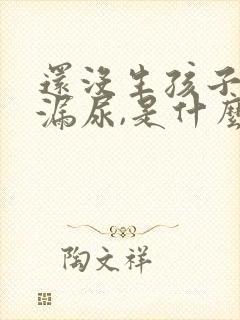 還沒生孩子
漏尿,是什麼
陶文祥